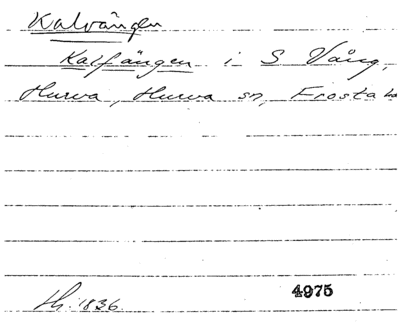 Kalvängen
Kalfängen i S Vång,
Hurva, Hurva sn, Frosta hd
4975
1836.